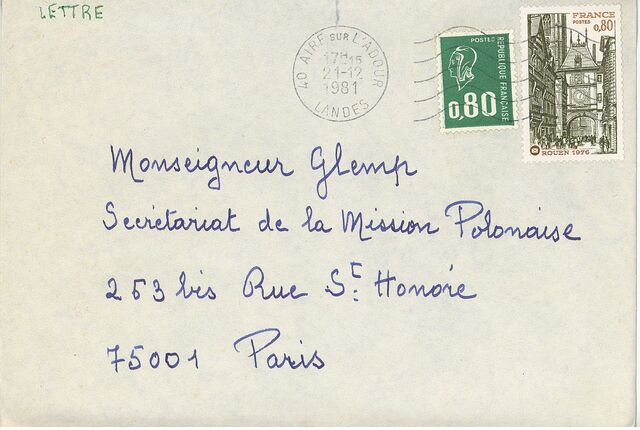 LETTRE
40 AIRE SUR L'ADOUR
17H15
21-12
1981
LANDES
POSTES
RÉPUBLIQUE FRANÇAISE
0,80
FRANCE
POSTES
0,80
ROUEN 1976
Monseigneur Glemp
Secrétariat de la Mission Polonaise
263 bis Rue St: Honoré
75001 Paris